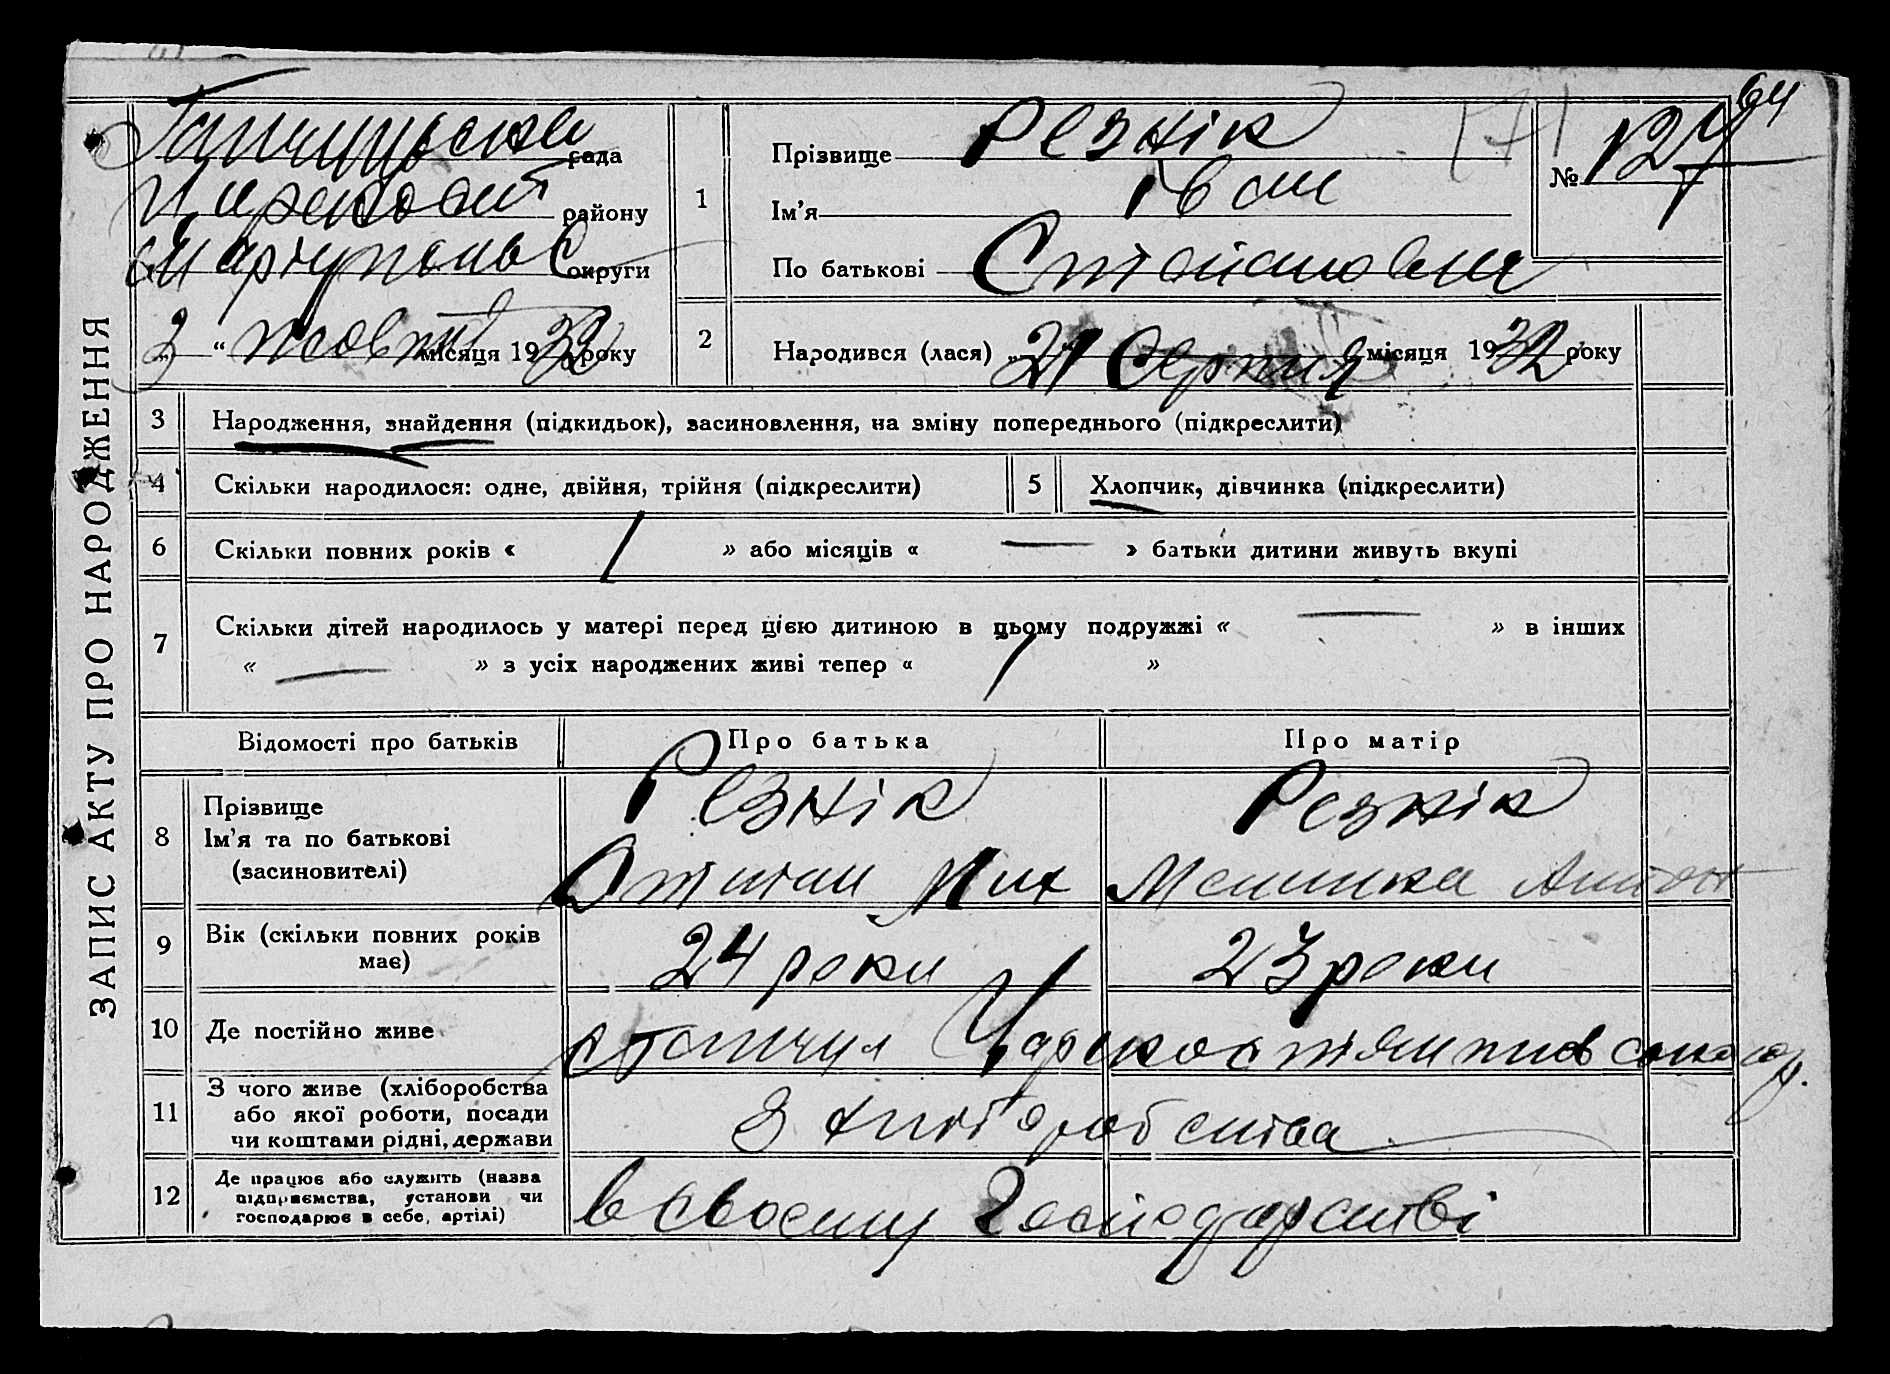 ЗАПИС АКТУ ПРО НАРОДЖЕННЯ
рада
району
округи
3 “ жовтня місяця 1932 року
1
Прізвище Резнік
Ім’я Іван
По батькові
№ 127
94
2
Народився (лася) „21 Серпня місяця 1932 року
3 Народження, знайдення (підкидьок), засиновлення, на зміну попереднього (підкреслити)
4 Скільки народилося: одне, двійня, трійня (підкреслити)
5 Хлопчик, дівчинка (підкреслити)
6 Скільки повних років « 1 » або місяців « — » батьки дитини живуть вкупі
7 Скільки дітей народилось у матері перед цією дитиною в цьому подружжі « — » в інших
« — » з усіх народжених живі тепер « 1 »
Відомості про батьків Про батька Про матір
8 Прізвище
Ім’я та по батькові
(засиновителі)
Резнік
Мих
Резнік
9 Вік (скільки повних років
має)
24 роки
23 роки
10 Де постійно живе
11 З чого живе (хліборобства
або якої роботи, посади
чи коштами рідні, держави
З хліборобства
12 Де працює або служить (назва
підприємства, установи чи
господарює в себе, артілі)
в своєму господарстві